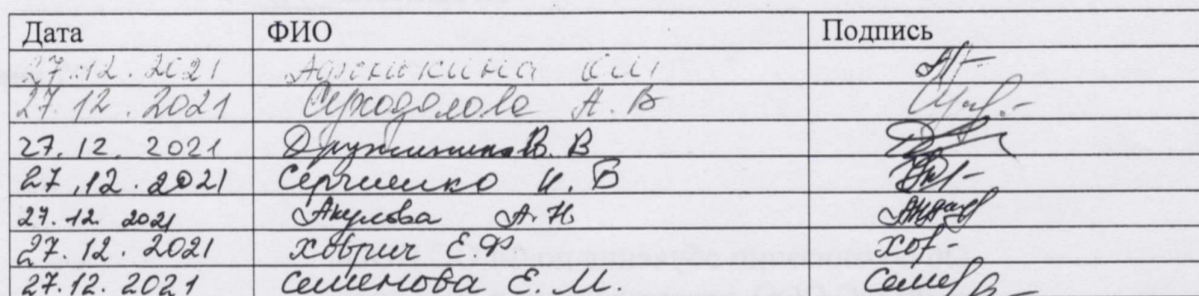 Дата ФИО Подпись
27.12.2021 Афонькина
27.12.2021 Суходолова А.В
27.12.2021 В.В
27.12.2021 Сергиенко И.Б
27.12.2021 Акулова А.Н
27.12.2021 Ховрич Е.Ф Хов-
27.12.2021 Семенова Е.М.